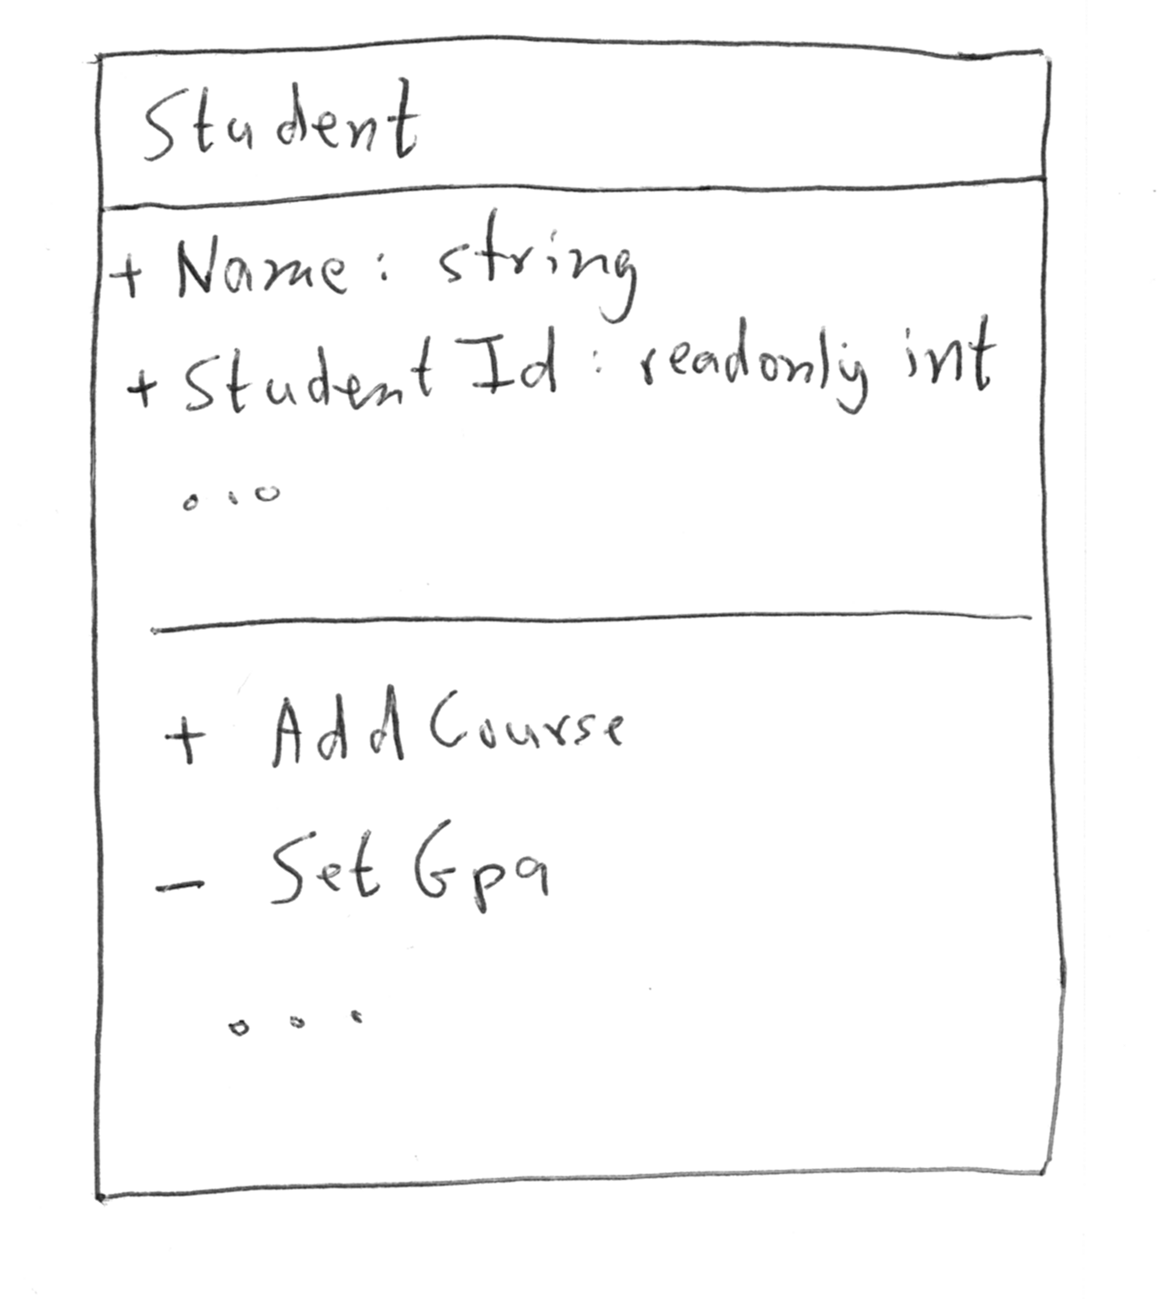 Student
+ Name: string
+ StudentId: readonly int
...
+ AddCourse
- SetGpa
...